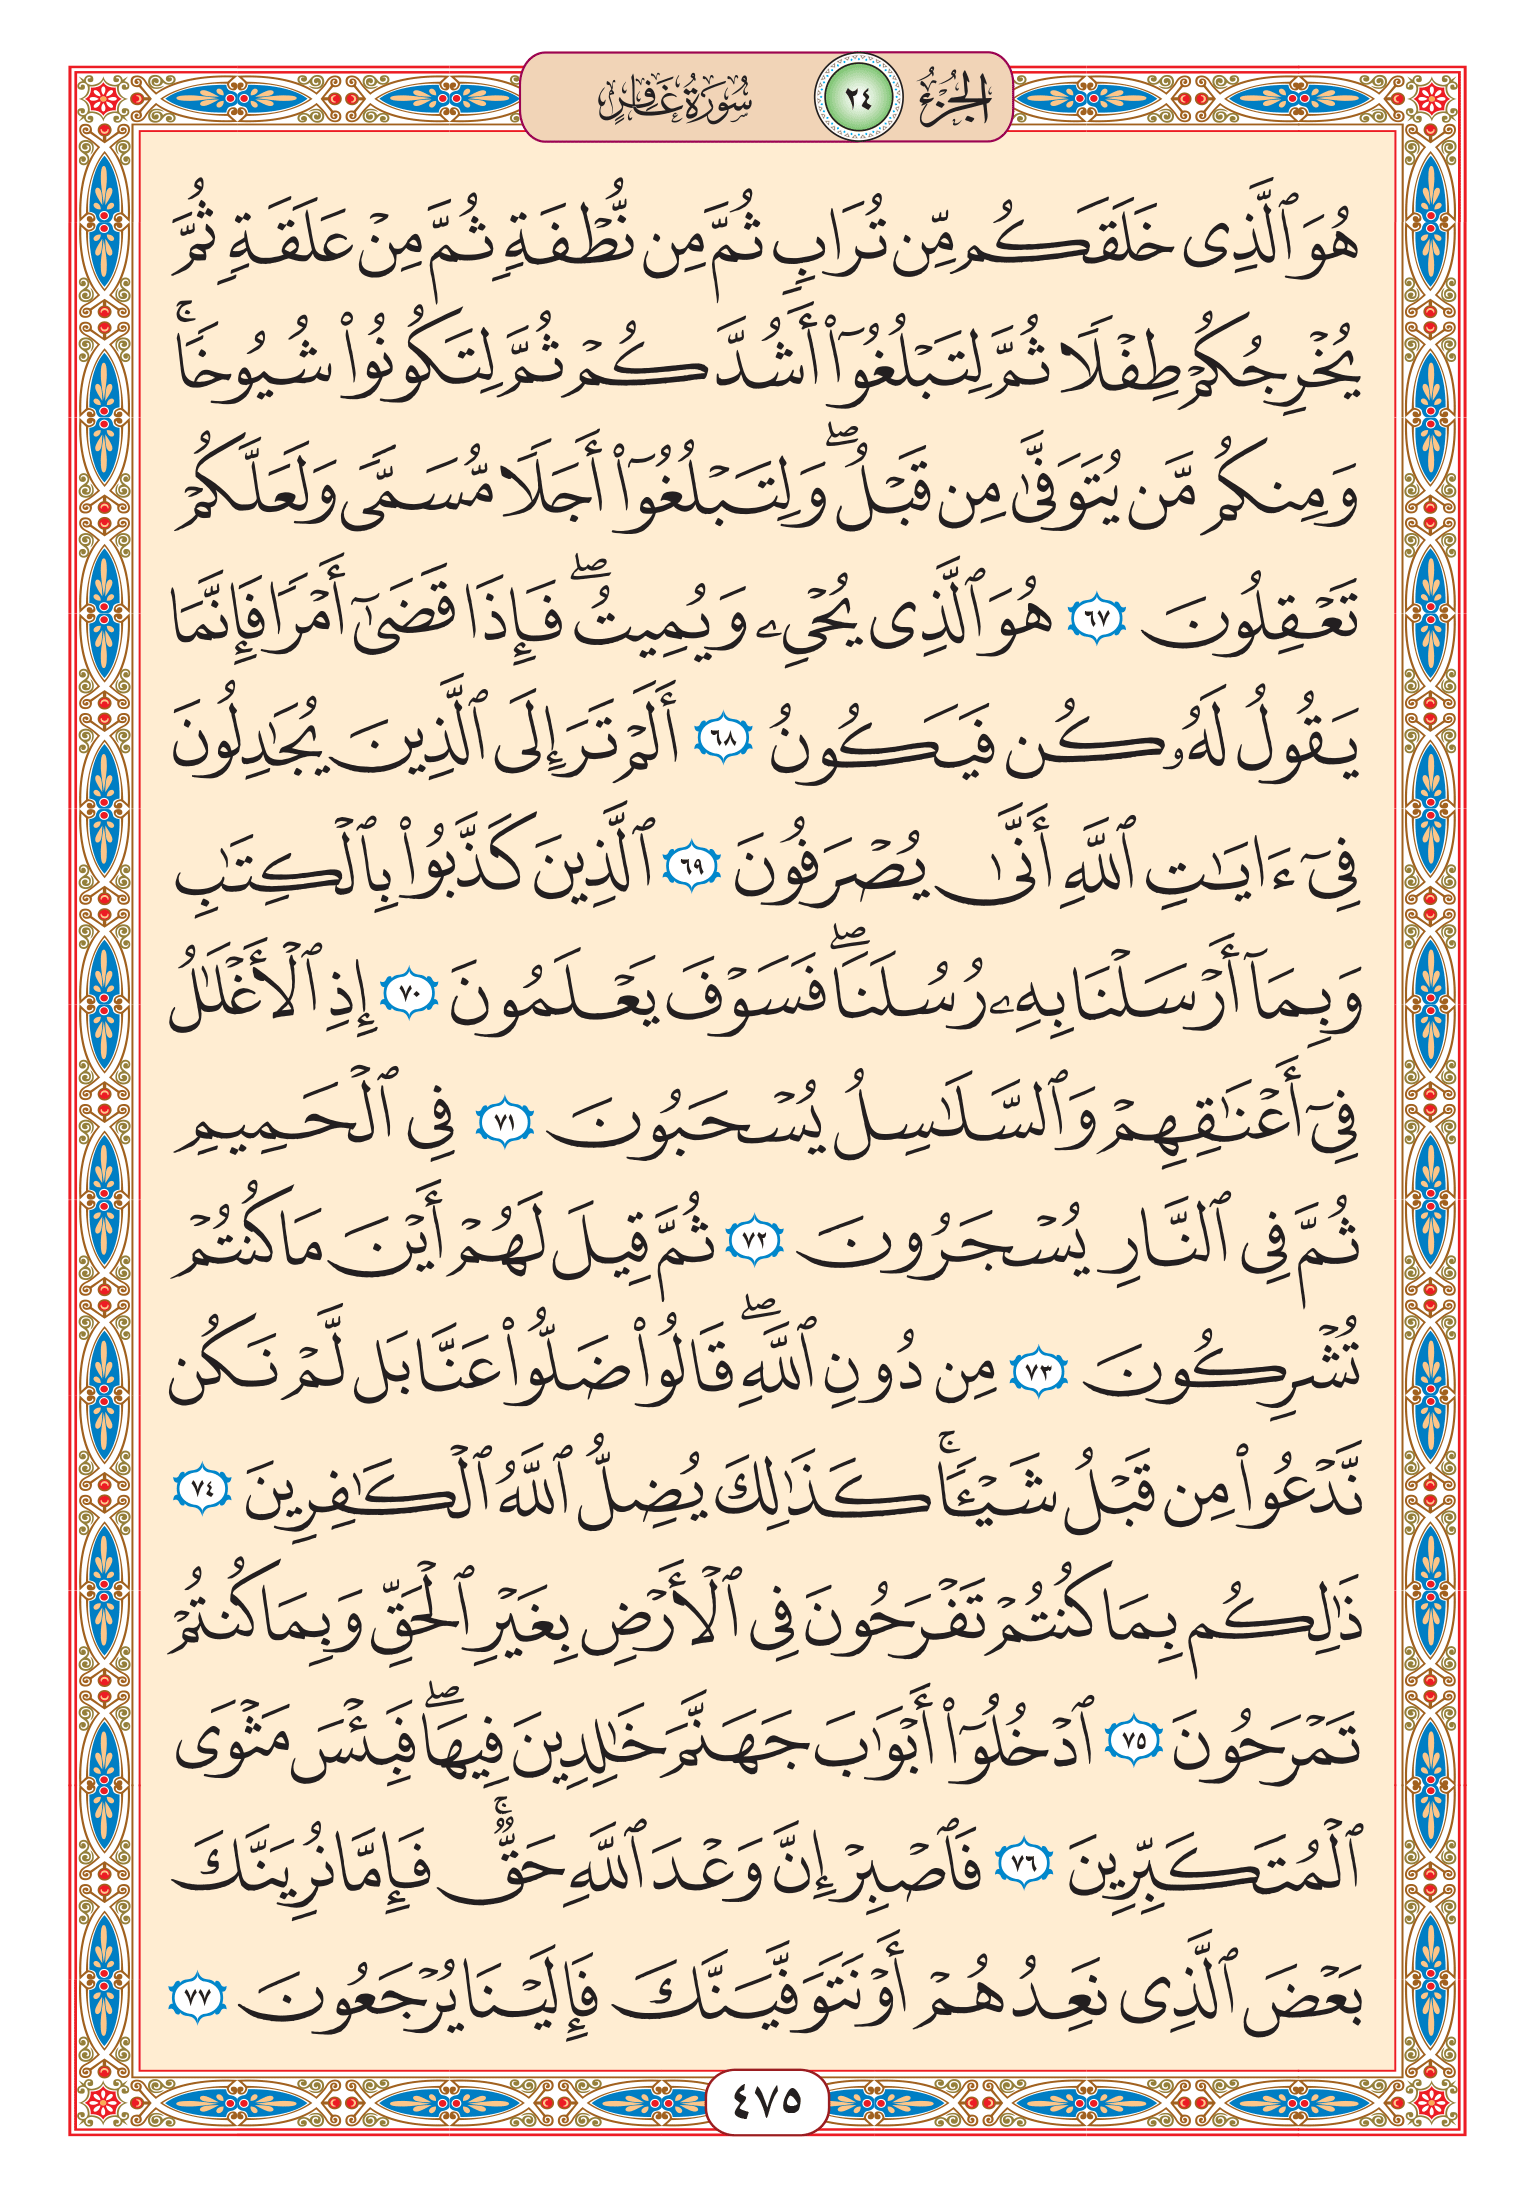 الجزء ٢٤ سورة غافر
هُوَ ٱلَّذِى خَلَقَكُم مِّن تُرَابٍ ثُمَّ مِن نُّطْفَةٍ ثُمَّ مِنْ عَلَقَةٍ ثُمَّ
يُخْرِجُكُمْ طِفْلًا ثُمَّ لِتَبْلُغُوٓا۟ أَشُدَّكُمْ ثُمَّ لِتَكُونُوا۟ شُيُوخًا ۚ
وَمِنكُم مَّن يُتَوَفَّىٰ مِن قَبْلُ ۖ وَلِتَبْلُغُوٓا۟ أَجَلًا مُّسَمًّى وَلَعَلَّكُمْ
تَعْقِلُونَ ٦٧ هُوَ ٱلَّذِى يُحْىِۦ وَيُمِيتُ ۖ فَإِذَا قَضَىٰٓ أَمْرًا فَإِنَّمَا
يَقُولُ لَهُۥ كُن فَيَكُونُ ٦٨ أَلَمْ تَرَ إِلَى ٱلَّذِينَ يُجَـٰدِلُونَ
فِىٓ ءَايَـٰتِ ٱللَّهِ أَنَّىٰ يُصْرَفُونَ ٦٩ ٱلَّذِينَ كَذَّبُوا۟ بِٱلْكِتَـٰبِ
وَبِمَآ أَرْسَلْنَا بِهِۦ رُسُلَنَا ۖ فَسَوْفَ يَعْلَمُونَ ٧٠ إِذِ ٱلْأَغْلَـٰلُ
فِىٓ أَعْنَـٰقِهِمْ وَٱلسَّلَـٰسِلُ يُسْحَبُونَ ٧١ فِى ٱلْحَمِيمِ
ثُمَّ فِى ٱلنَّارِ يُسْجَرُونَ ٧٢ ثُمَّ قِيلَ لَهُمْ أَيْنَ مَا كُنتُمْ
تُشْرِكُونَ ٧٣ مِن دُونِ ٱللَّهِ ۖ قَالُوا۟ ضَلُّوا۟ عَنَّا بَل لَّمْ نَكُن
نَّدْعُوا۟ مِن قَبْلُ شَيْـًٔا ۚ كَذَٰلِكَ يُضِلُّ ٱللَّهُ ٱلْكَـٰفِرِينَ ٧٤
ذَٰلِكُم بِمَا كُنتُمْ تَفْرَحُونَ فِى ٱلْأَرْضِ بِغَيْرِ ٱلْحَقِّ وَبِمَا كُنتُمْ
تَمْرَحُونَ ٧٥ ٱدْخُلُوٓا۟ أَبْوَٰبَ جَهَنَّمَ خَـٰلِدِينَ فِيهَا ۖ فَبِئْسَ مَثْوَى
ٱلْمُتَكَبِّرِينَ ٧٦ فَٱصْبِرْ إِنَّ وَعْدَ ٱللَّهِ حَقٌّ ۚ فَإِمَّا نُرِيَنَّكَ
بَعْضَ ٱلَّذِى نَعِدُهُمْ أَوْ نَتَوَفَّيَنَّكَ فَإِلَيْنَا يُرْجَعُونَ ٧٧
٤٧٥